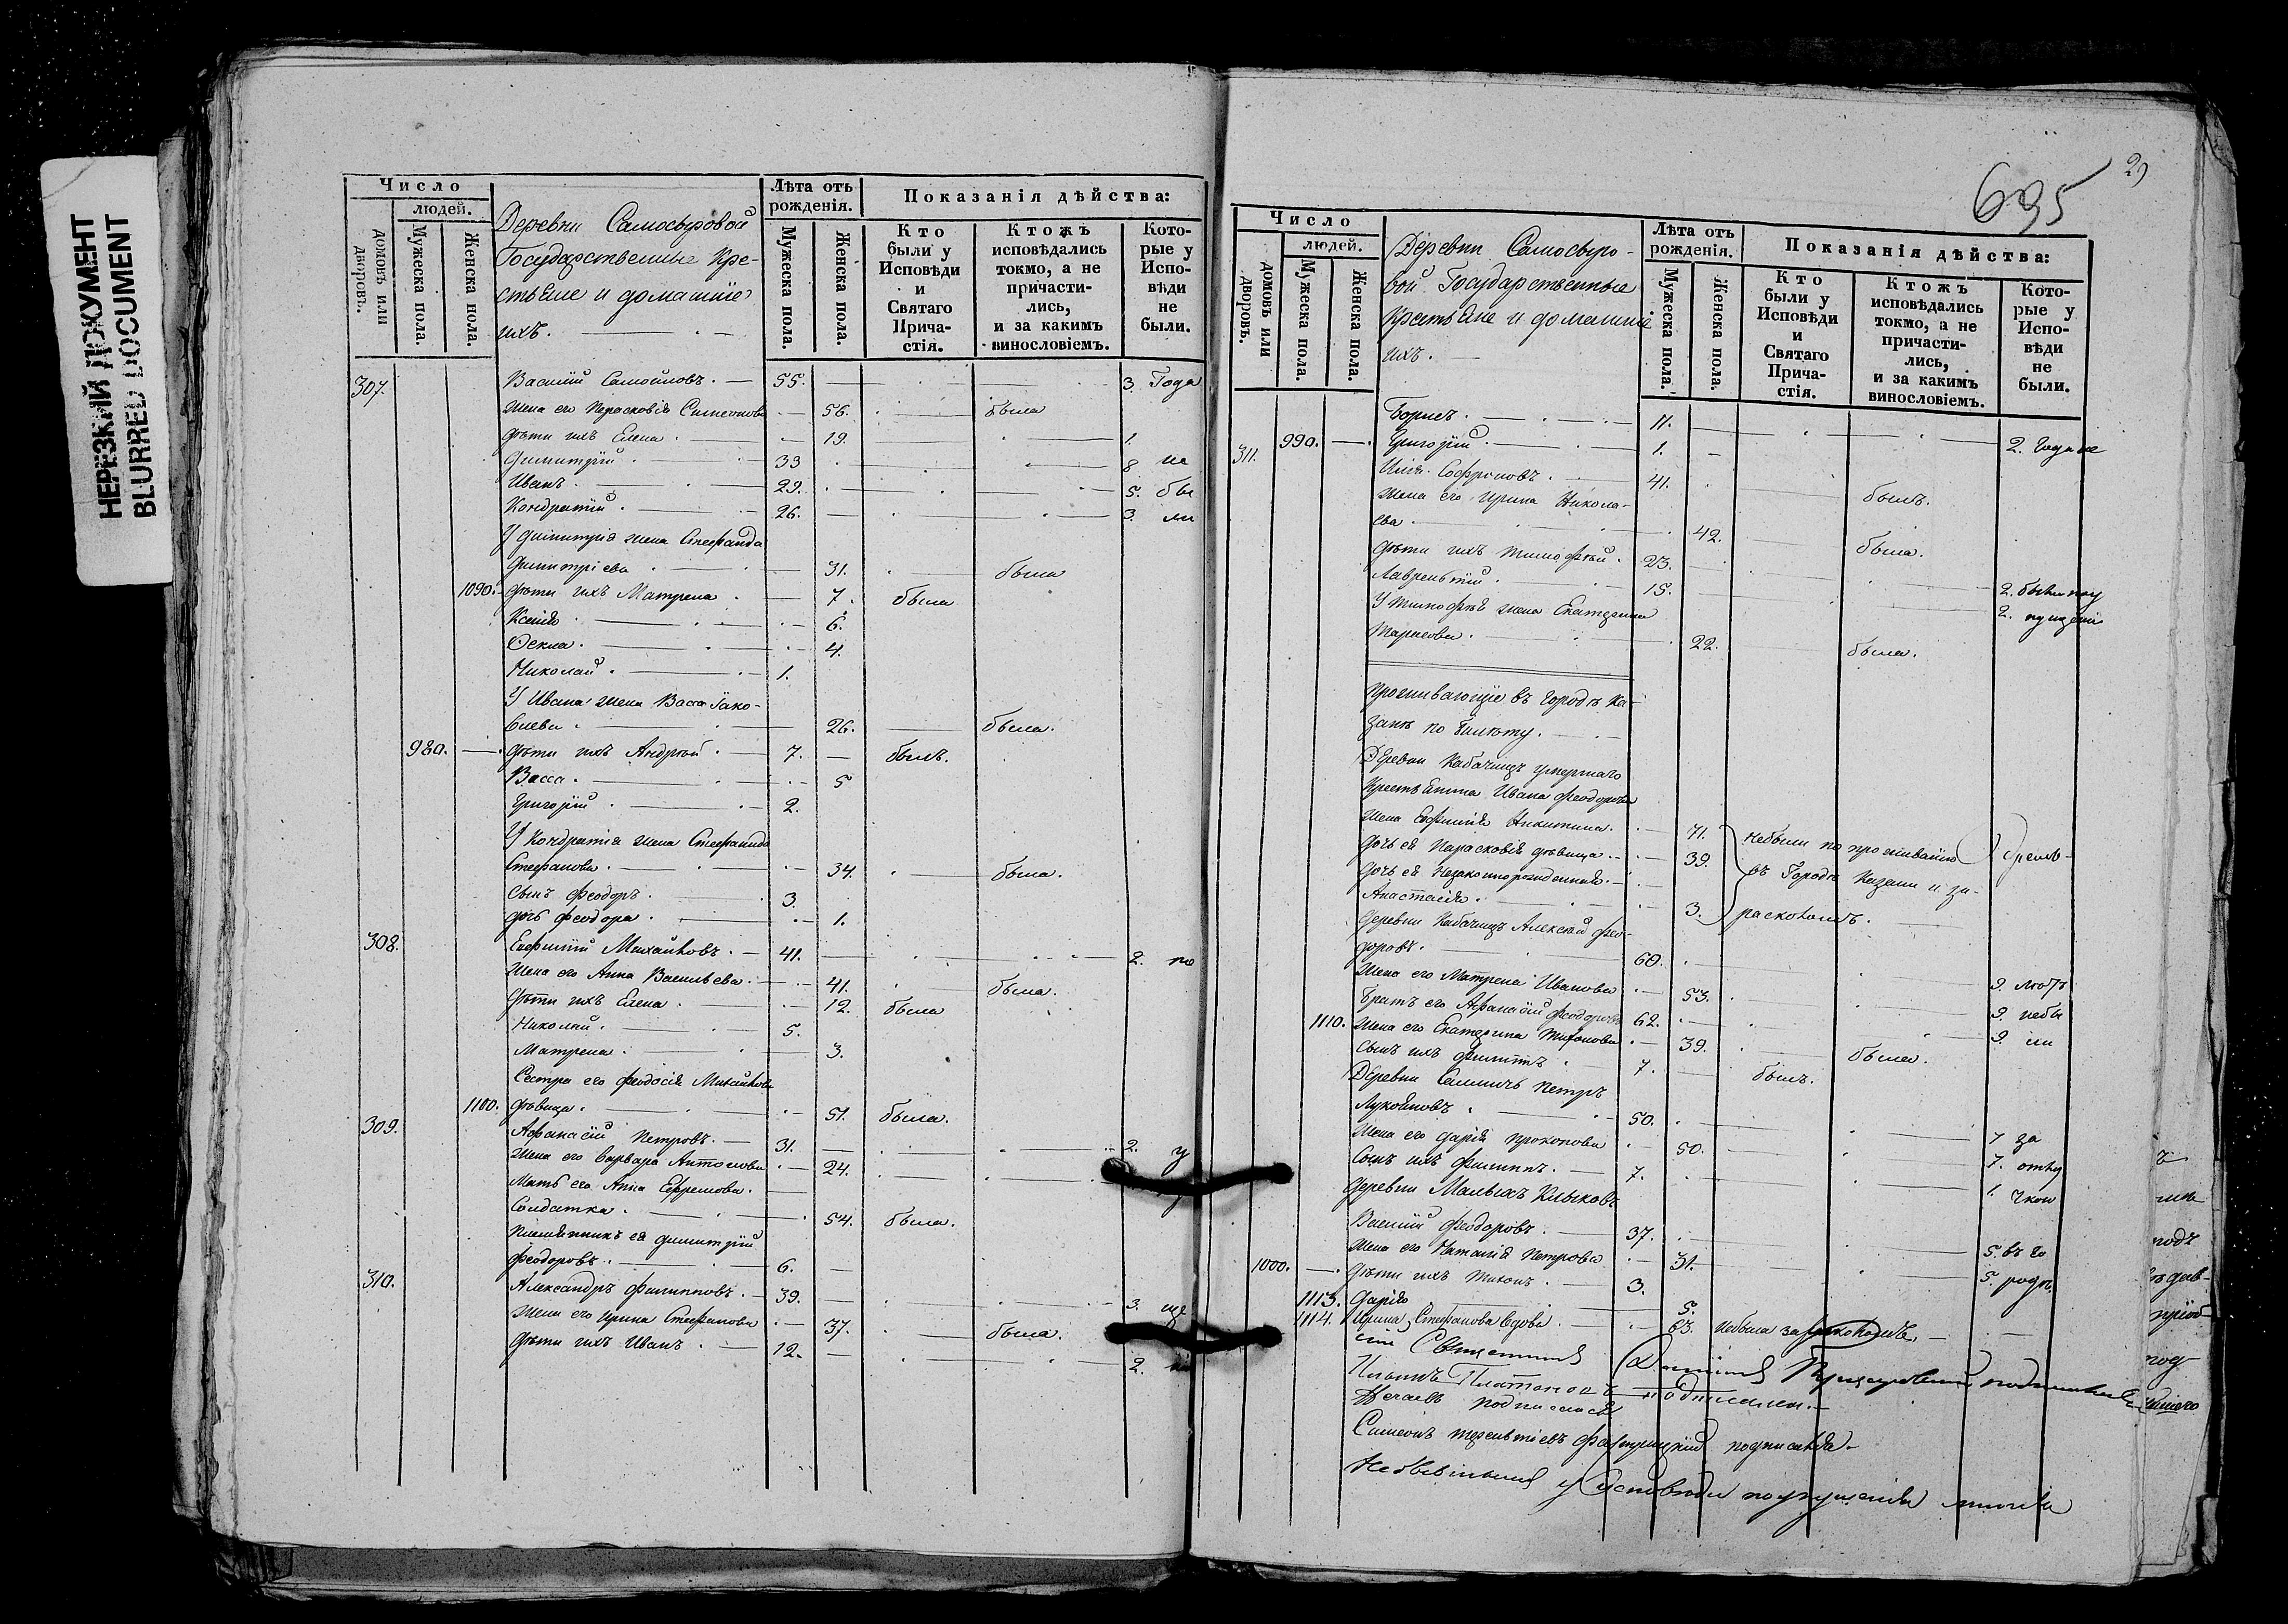 НЕРЕЗКИЙ ДОКУМЕНТ
BLURRED DOCUMENT
Число
людей.
домовъ или дворовъ.
Мужеска пола.
Женска пола.
Деревни Самосыровой
Государственные Кре-
стьяне и домашніе
ихъ.
Лѣта отъ рожденія.
Мужеска пола.
Женска пола.
Показанія дѣйства:
Кто были у Исповѣди и Святаго Прича-стія.
Ктожъ исповѣдались токмо, а не причасти-лись, и за какимъ винословіемъ.
Кото-рые у Испо-вѣди не были.
307. Василій Самойловъ. 55. 3. Года
Жена его Парасковія Симеонова 56. была
Дѣти ихъ Елена 19. 1.
Димитрій 33 8 не
Иванъ 29. 5. бы
Кондратій 26. 3. ли
У Димитрія жена Стефанида
Димитріева 31. была
1090. Дѣти ихъ Матрена 7. была
Ксенія 6.
Өекла 4.
Николай 1.
У Ивана жена Васса Іако-
влева 26. была.
980. Дѣти ихъ Андрей 7. былъ.
Васса 5
Григорій 2.
У Кондратія жена Стефанида
Стефанова 34. была.
Сынъ Феодоръ. 3.
Дочь Феодора 1.
308. Евфимій Михайловъ. 41. 2. по
Жена его Анна Васильева 41. была.
Дѣти ихъ Елена 12. была
Николай. 5.
Матрена. 3.
Сестра его Феодосія Михайлова
1100. дѣвица. 51. была.
309. Афанасій Петровъ. 31. 2. у
Жена его Варвара Антонова 24.
Мать его Анна Ефремова.
Солдатка. 54. была.
Племянникъ ея Димитрій
Феодоровъ. 6.
310. Александръ Филипповъ. 39. 3. ще
Жена его Ирина Стефанова 37. была.
Дѣти ихъ Иванъ 12. 2.
695
Число
людей.
домовъ или дворовъ.
Мужеска пола.
Женска пола.
Деревни Самосыро-
вой Государственные
Крестьяне и домашніе
ихъ.
Лѣта отъ рожденія.
Мужеска пола.
Женска пола.
Показанія дѣйства:
Кто были у Исповѣди и Святаго Прича-стія.
Ктожъ исповѣдались токмо, а не причасти-лись, и за какимъ винословіемъ.
Кото-рые у Испо-вѣди не были.
Борисъ. 11. 2. года не
990. Григорій. 1.
311. Илія Софроновъ. 41. былъ.
Жена его Ирина Никола-
ева 42. была.
Дѣти ихъ Тимофей. 23. 2. были поу
Лаврентій. 15. 2. пущенію
У Тимофея жена Екатерина
Тарасова. 22. была.
Проживающіе въ городѣ Ка-
занѣ по билѣту.
Деревни Кабачищъ умершаго
Крестьянина Ивана Феодорова
жена Евфимія Никитина. 71. небыли по проживанію
Дочь ея Парасковія дѣвица 39. въ Городѣ Казани и за
Дочь ея Незаконнорожденная
Анастасія. 3. расколомъ.
Деревни Кабачищъ Алексѣй Фео-
доровъ. 60. 9.
Жена его Матрена Иванова 53. 9. небы
Братъ его Афанасій Феодоровъ 62. 9. ли
1110. Жена его Екатерина Тихонова 39. была.
Сынъ ихъ Филиппъ 7. былъ.
Деревни Петръ
Лукояновъ 50. 7 за
Жена его Дарія Прокопова 50. 7. отлу
Сынъ ихъ Филиппъ. 7. 1. чкою
Деревни Малыхъ Клыковъ
Василій Феодоровъ. 37. 5. въ го
Жена его Наталія Петрова 31. 5. родѣ.
1000. Дѣти ихъ Тихонъ. 3.
1113. Дарія 5.
1114. Ирина Стефанова вдова. 63. небыла за расколомъ.
Священникъ
подписался
Симеонъ Терентіевъ подписался
Небывшія у Исповѣди по упущенію